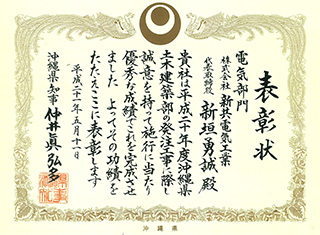 表彰状
電気部門
株式会社 新共電気工業
代表取締役 新垣勇誠 殿
貴社は平成二十年度沖縄県
土木建築部の発注工事に際し
誠意を持って施行に当たり
優秀な成績でこれを完成させ
ました よってその功績を
たたえここに表彰します
平成二十一年五月十一日
沖縄県知事 仲井眞弘多
沖縄県